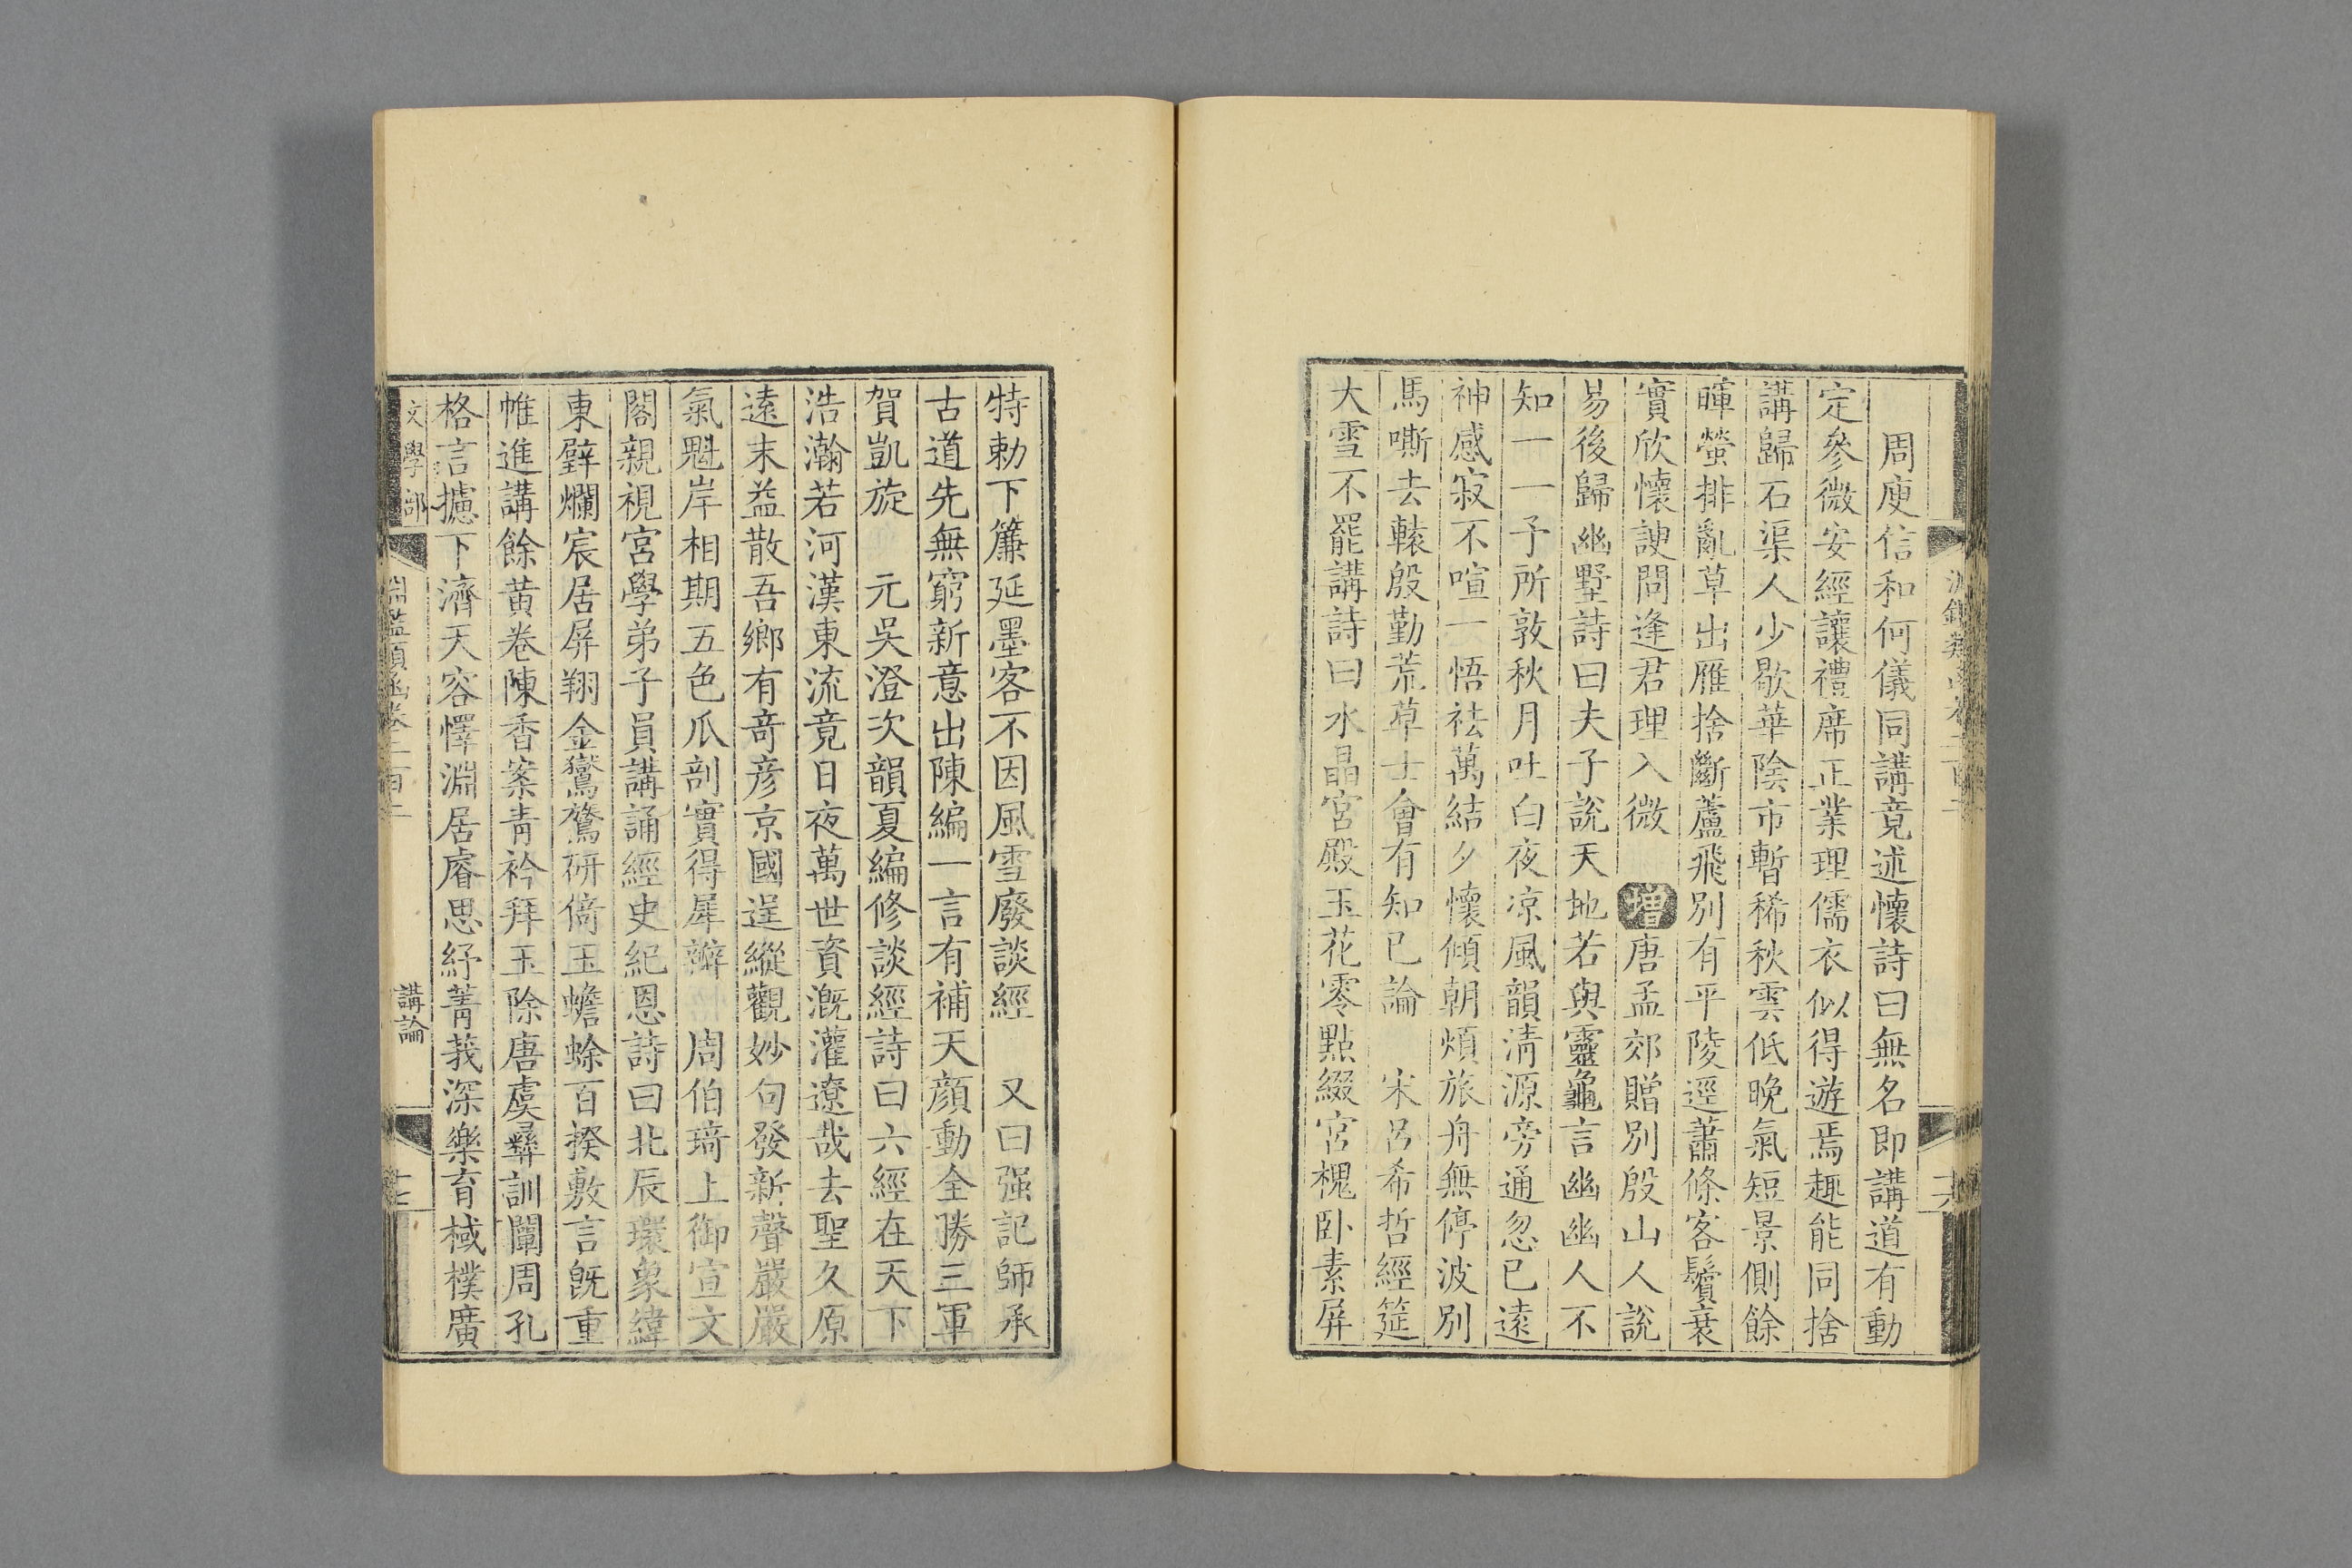 周庾信和何儀同講竟述懷詩曰無名即講道有動
定參微安經讓禮席正業理儒衣似得遊焉趣能同捨
講歸石渠人少歇華陰市暫稀秋雲低晚氣短景側餘
暉螢排亂草出雁捨斷蘆飛別有平陵逕蕭條客鬢衰
實欣懷諛問逢君理入微 增唐孟郊贈別殷山人說
易後歸幽墅詩曰夫子說天地若與靈龜言幽幽人不
知一一予所敦秋月吐白夜凉風韻淸源旁通忽已遠
神感寂不喧一悟祛萬結夕懷傾朝煩旅舟無停波別
馬嘶去轅殷勤荒草士會有知已論 宋呂希哲經筵
大雪不罷講詩曰水晶宮殿玉花零點綴宮槐卧素屏
特勅下簾延墨客不因風雪廢談經 又曰强記師承
古道先無窮新意出陳編一言有補天顏動全勝三軍
賀凱旋 元吳澄次韻夏編修談經詩曰六經在天下
浩瀚若河漢東流竟日夜萬世資漑灌遼哉去聖久原
遠末益散吾鄉有奇彥京國逞縱觀妙句發新聲嚴嚴
氣魁岸相期五色爪剖實得犀瓣 周伯琦上御宣文
閣親視宮學弟子員講誦經史紀恩詩曰北辰環象緯
東壁爛宸居屏翔金鸑鷟硏倚玉蟾蜍百揆敷言旣重
帷進講餘黃卷陳香案靑衿拜玉除唐虞彞訓闡周孔
格言攄下濟天容懌淵居睿思紓菁莪深樂育棫樸廣
文學部
淵鑑類函卷二百二
講論